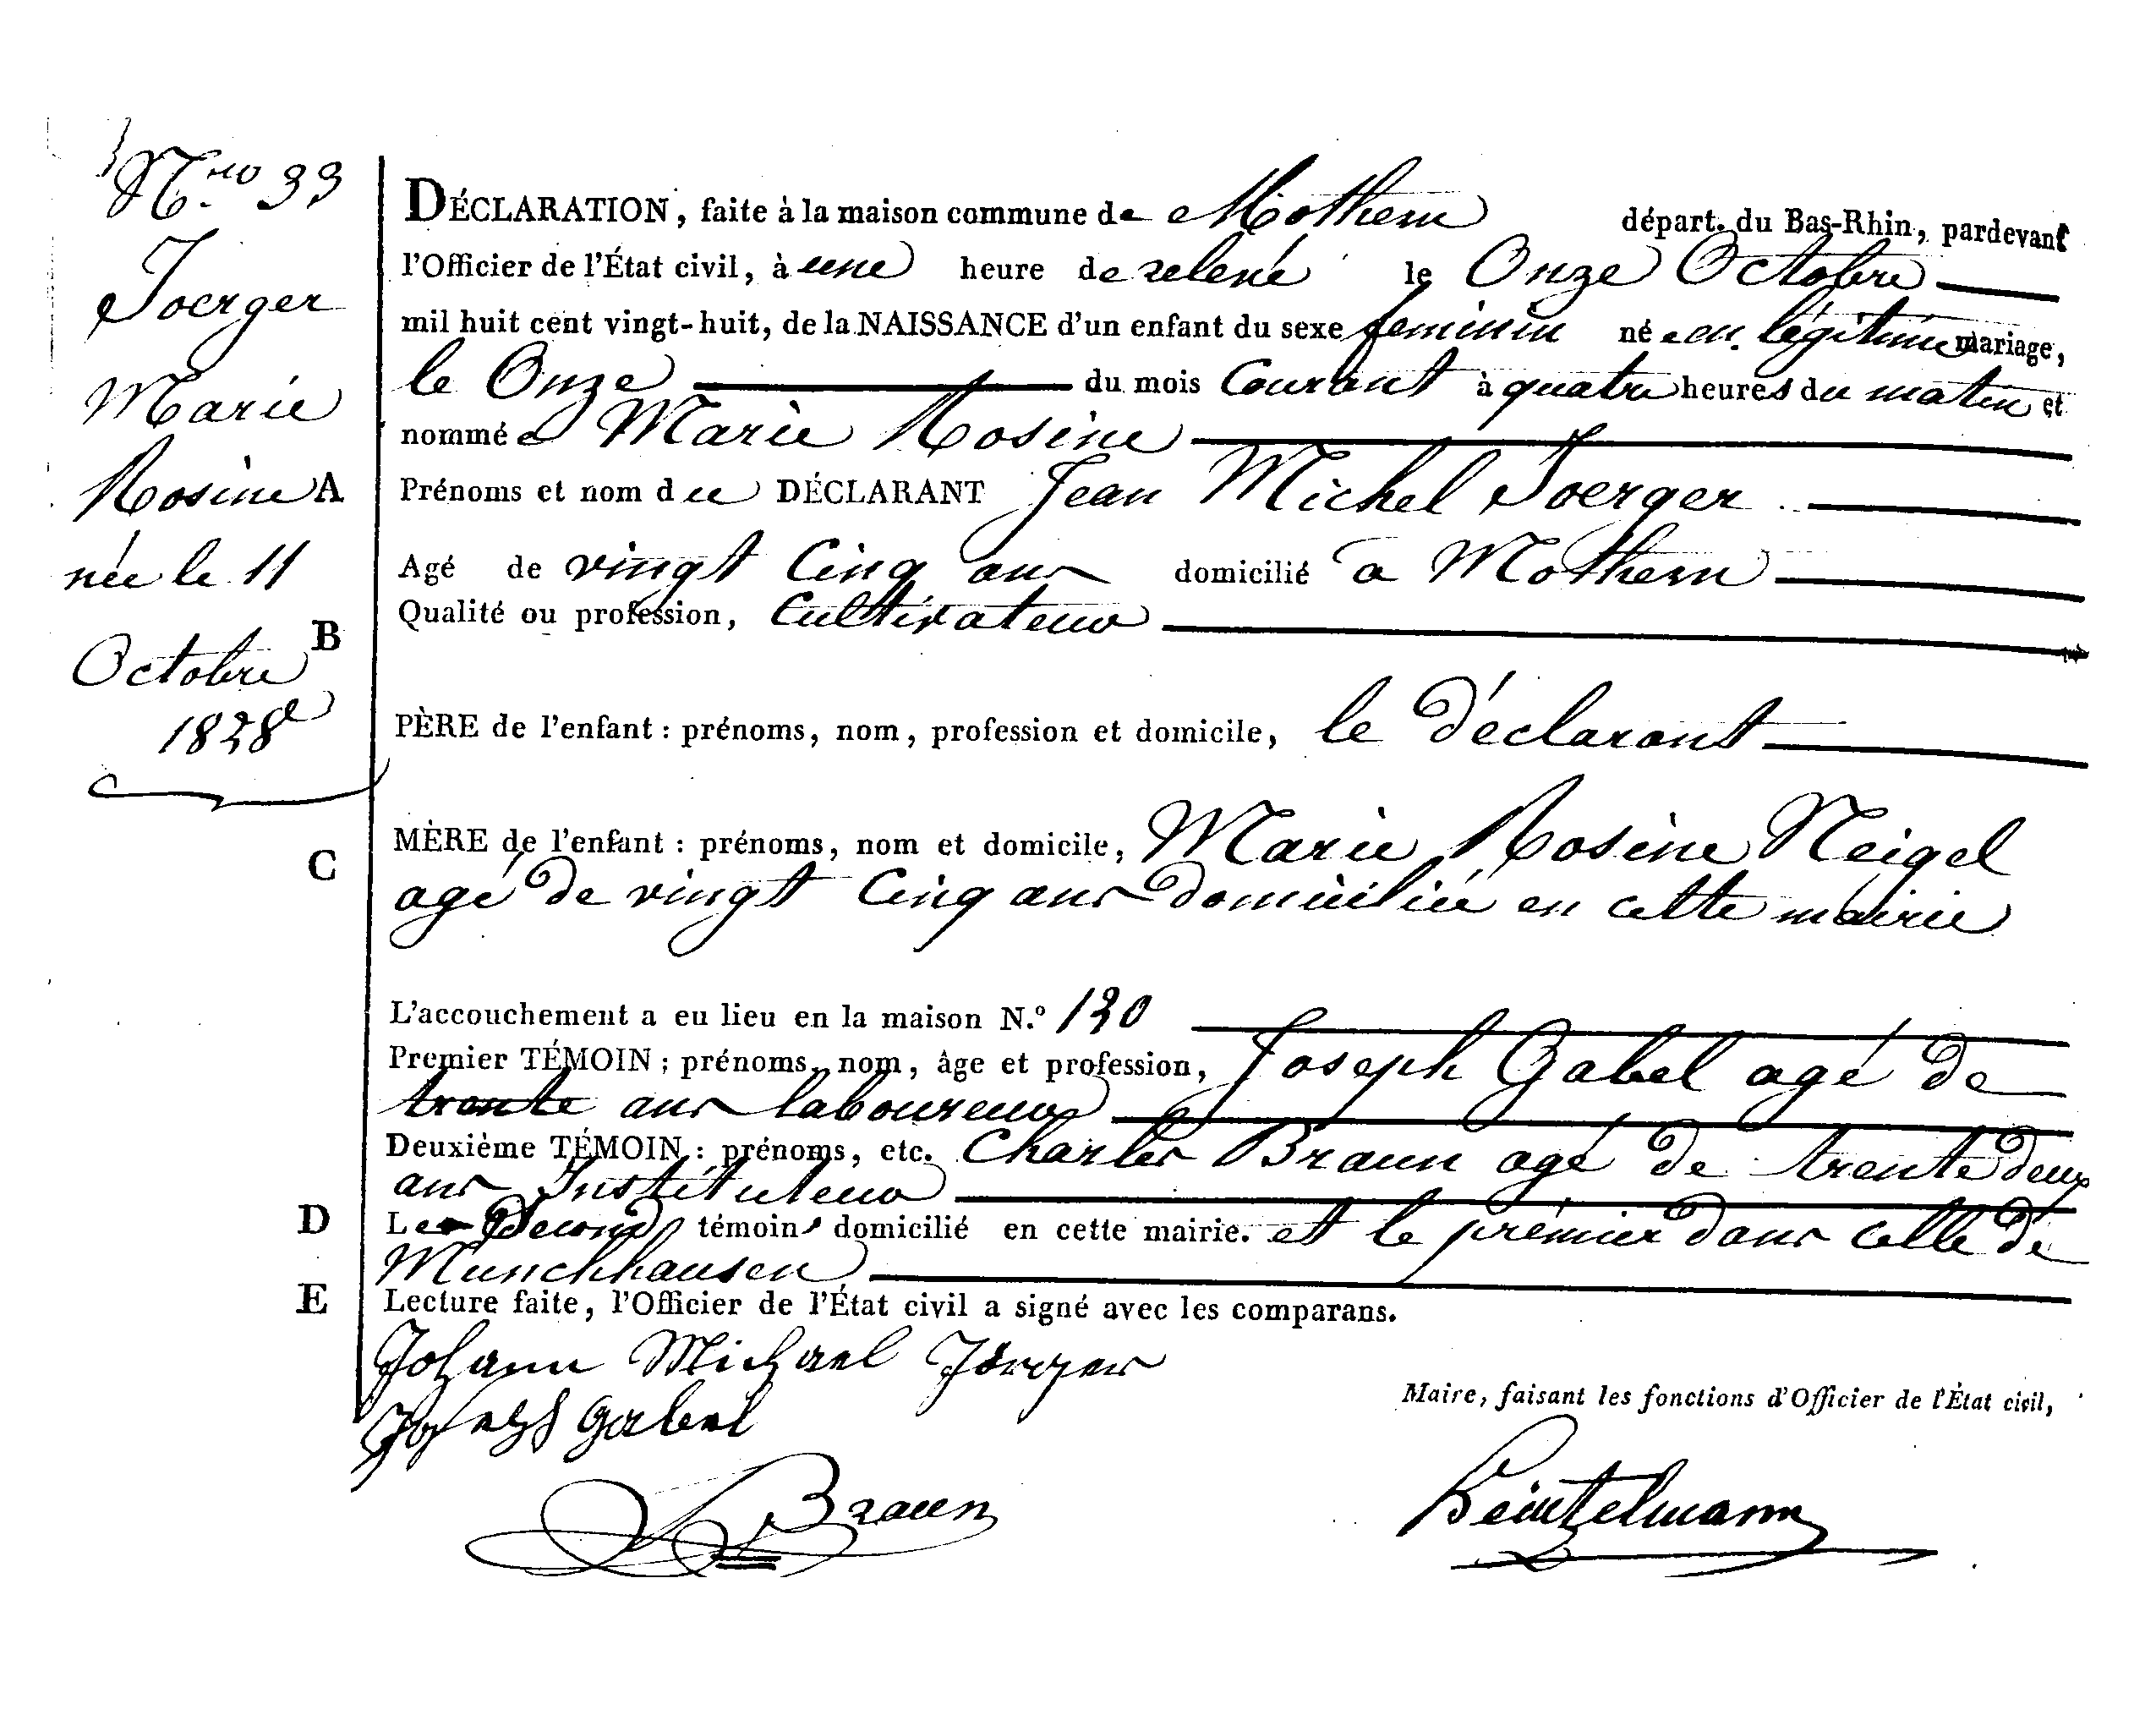 Nro 33
Joerger
Marie
Rosine
née le 11
Octobre
1828
DÉCLARATION, faite à la maison commune de Mothern départ. du Bas-Rhin, pardevant
l'Officier de l'État civil, à une heure de relevé le Onze Octobre
mil huit cent vingt-huit, de la NAISSANCE d'un enfant du sexe feminin né en légitime mariage,
le Onze du mois Courant à quatre heures du matin et
nommé e Marie Rosine
A Prénoms et nom du DÉCLARANT Jean Michel Joerger
Agé de vingt Cinq ans domicilié à Mothern
Qualité ou profession, Cultivateur
B
PÈRE de l'enfant : prénoms, nom, profession et domicile, le déclarant
C MÈRE de l'enfant : prénoms, nom et domicile, Marie Rosine Neigel
agé de vingt Cinq ans domiciliée en cette mairie
L'accouchement a eu lieu en la maison N.º 130
Premier TÉMOIN ; prénoms, nom, âge et profession, Joseph Gabel agé de
trente ans laboureur
Deuxième TÉMOIN : prénoms, etc. Charles Braun agé de trente deux
ans Instituteur
D Le Second témoin domicilié en cette mairie. et le prémier dans celle de
Munchhausen
E Lecture faite, l'Officier de l'État civil a signé avec les comparans.
Johann Michael Jörger
Joseph Gabel
Maire, faisant les fonctions d'Officier de l'État civil,
Braun